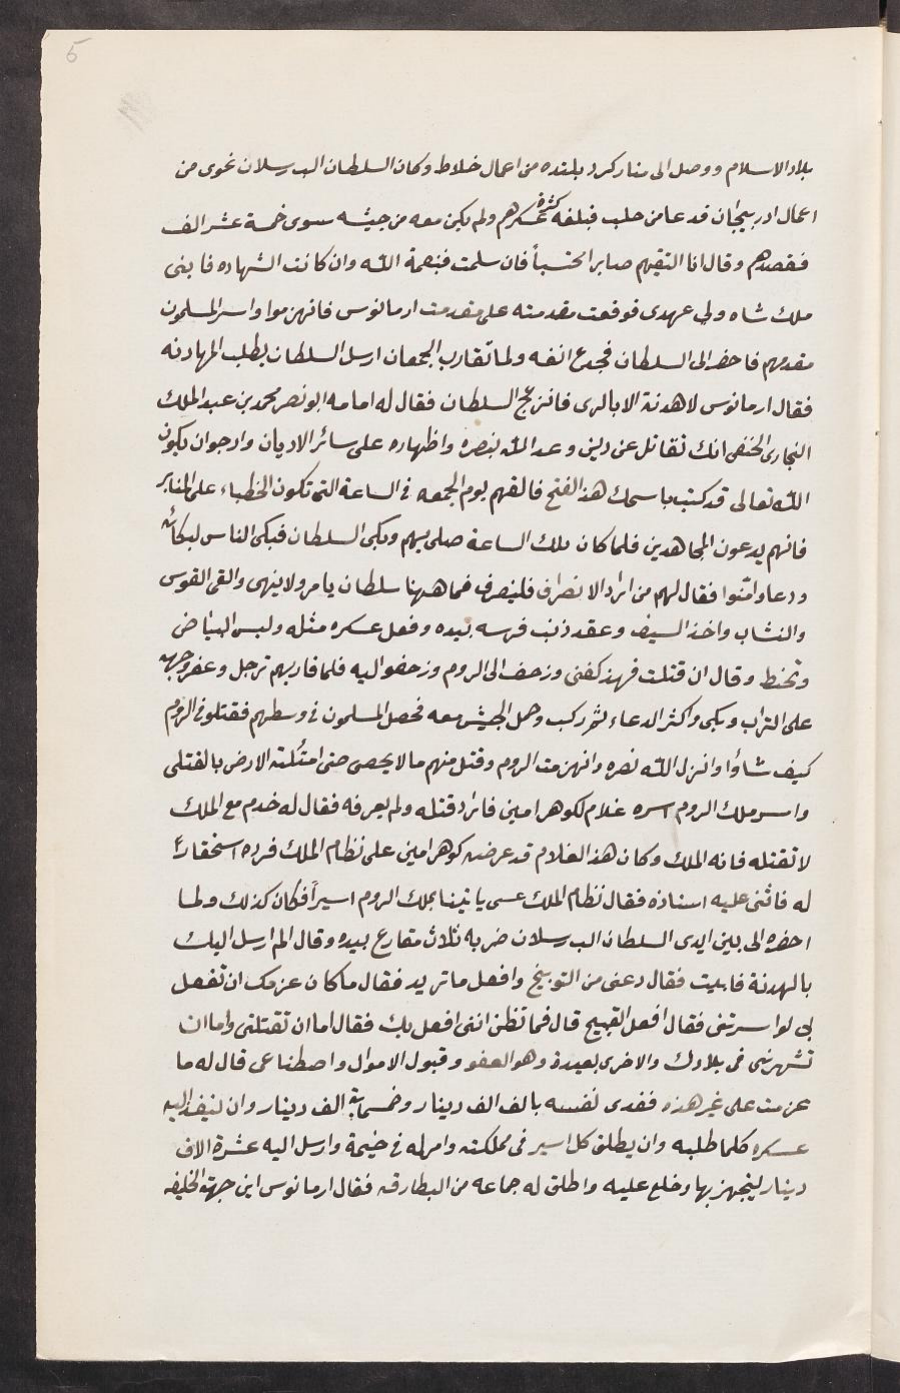 5
بلاد الاسلام ووصل الى منازكرد بلده من اعمال خلاط وكان السلطان الب رسلان نحوى من
اعمال ادربيجان قد عا من حلب فبلغه كثرة عسكرهم ولم يكن معه من جيشه سوى خمسة عشر الف
فقصدهم وقال انا التقيهم صابرا محتسبأ فان سلمت فنعمة الله وان كانت الشهاده فابنى
ملك شاه ولي عهدى فوقعت مقدمته على مقدمت ارمانوس فانهزموا واسر المسلمون
مقدمهم فاحضر الى السلطان فجدع انفه ولما تقارب الجمعان ارسل السلطان يطلب المهادنه
فقال ارمانوس لا هدنة الا بالرى فانزعج السلطان فقال له امامه ابو نصر محمد بن عبد الملك
النجارى الحنفى انك تقاتل عن دين وعد الله بنصره واظهاره على سائر الاديان وارجوان يكون
الله تعالى قد كتب باسمك هذ الفتح فالقهم يوم الجمعه فى الساعة التى تكون الخطباء على المنابر
فانهم يدعون المجاهدين فلما كان تلك الساعة صلى بهم وبكى السلطان فبكى الناس لبكائه
ودعا وامّنوا فقال لهم من اراد الانصراف فلينصرف فما هـهنا سلطان يامر ولا ينهى والقى القوس
والنشاب واخذ السيف وعقد ذنب فرسه بيده وفعل عسكره مثله ولبس البياض
وتحنط وقال ان قتلت فهذ كفنى وزحف الى الروم وزحفو اليه فلما قاربهم ترجل وعفر وجهه
على التراب وبكى واكثر الدعاء ثم ركب وحمل الجيش معه فحصل المسلمون فى وسطهم فقتلو فى الروم
كيف شاؤا وانزل الله نصره وانهزمت الروم وقتل منهم ما لا يحصى حتى امتلئت الارض بالقتلى
واسر ملك الروم اسره غلام لكوهرامين فاراد قتله ولم يعرفه فقال له خدم مع الملك
لا تقتله فانه الملك وكان هذ الغلام قد عرضه كوهرامين على نظام الملك فرده استحقاراً
له فاثنى عليه استاذه فقال نظام الملك عسى ياتينا بملك الروم اسيراً فكان كذلك ولما
احضره الى بين ايدى السلطان الب رسلان ضربه ثلاث مقارع بيده وقال الم ارسل اليك
بالهدنة فابيت فقال دعنى من التوبيخ وافعل ما تريد فقال ما كان عزمك ان تفعل
بى لو اسرتنى فقال افعل القبيح قال فما تظن اننى افعل بك فقال اما ان تقتلنى واما ان
تشهرنى فى بلادك والاخرى بعيدة وهو العفو وقبول الاموال واصطناعى قال له ما
عزمت على غير هذه ففدى نفسه بالف الف دينار وخمسماية الف دينار وان ينفذ اليه
عسكره كلما طلبه وان يطلق كل اسير فى مملكته وامر له فى خيمة وارسل اليه عشرة الاف
دينار ليتجهز بها وخلع عليه واطلق له جماعه من البطارقه فقال ارمانوس اين جهة الخليفه